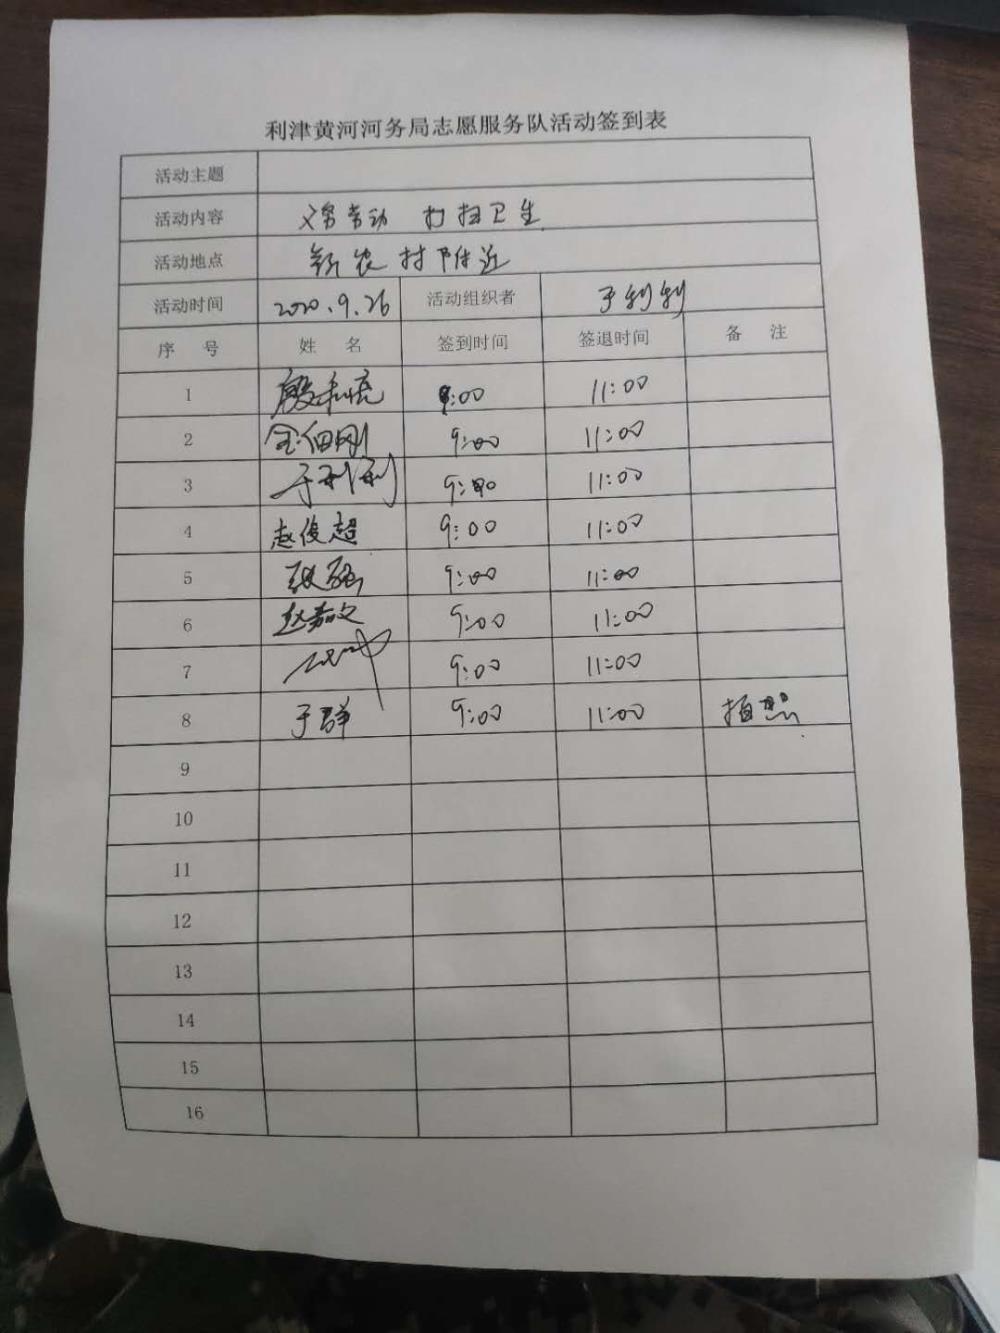 利津黄河河务局志愿服务队活动签到表
活动主题
活动内容 义务劳动 打扫卫生
活动地点 新农村附近
活动时间 2020.9.26 活动组织者 于利利
序 号 姓 名 签到时间 签退时间 备 注
1 9:00 11:00
2 9:00 11:00
3 于利利 9:00 11:00
4 赵俊超 9:00 11:00
5 9:00 11:00
6 赵嘉文 9:00 11:00
7 9:00 11:00
8 于群 9:00 11:00 拍照
9
10
11
12
13
14
15
16